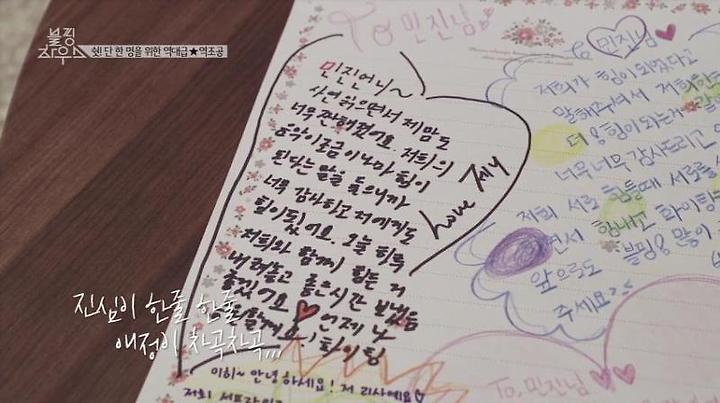 블핑
하우스
쉿! 단 한 명을 위한 역대급★역조공
To 민진님
민진언니~
사연 읽으면서 제맘도
너무 짠해졌어요. 저희의
음악이 조금이나마 힘이
된다는 말을 들으니까
너무 감사하고 저에게도
힘이 됬어요. 오늘 하루
저희와 함께 힘든 거
내려놓고 좋은시간 보냈음
좋겠어요 언제나
화이팅
love 제니
To 민진님
저희가 힘이 되었다고
말해주셔서 저희한테
더 힘이 되는거
너무너무 감사드리고
저희 서로 힘들때 서로를
힘내고 화이팅
앞으로도 블핑을 많이
주세요
이히~ 안녕하세요! 저 리사예요
저희
To. 민진님
진심이 한줄 한줄
애정이 차곡차곡,,,